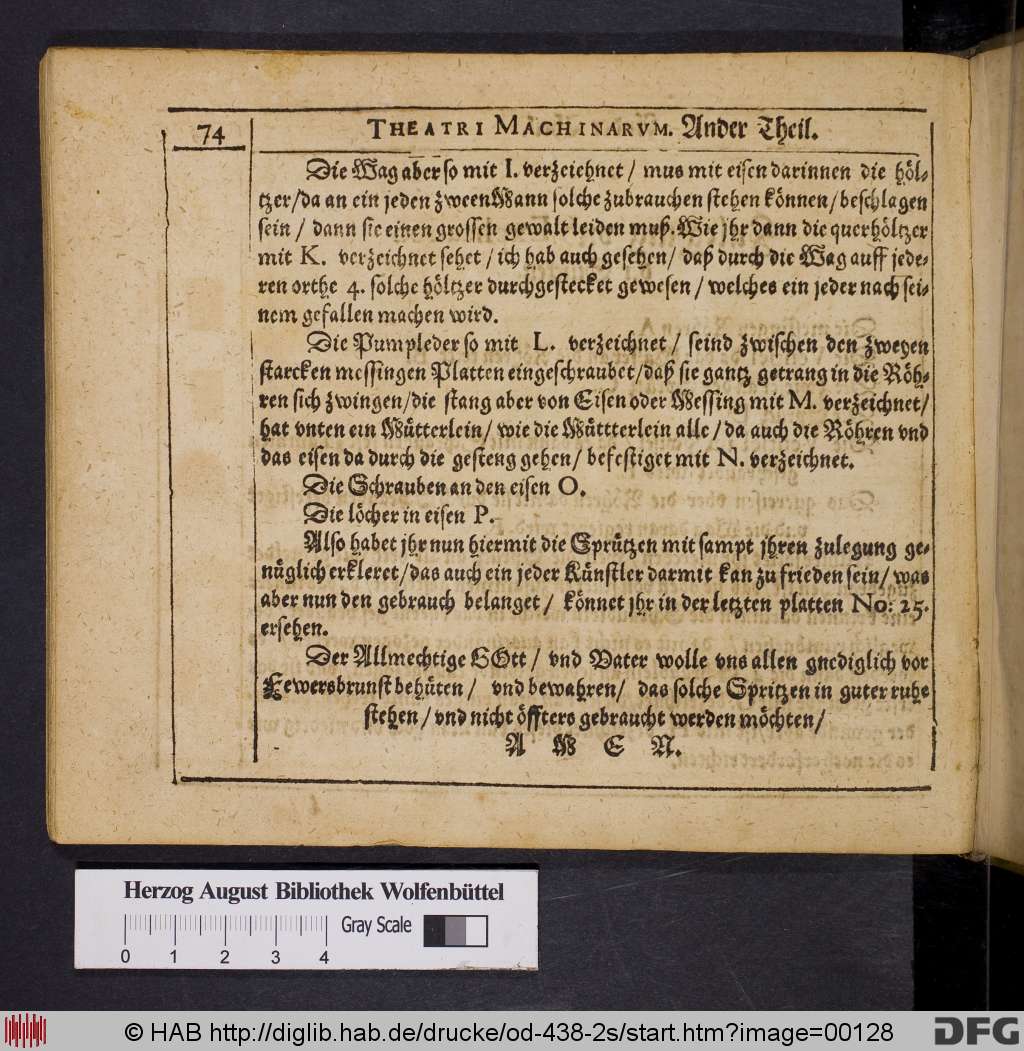 74
THEATRI MACHINARVM. Ander Theil.
Die Wag aber so mit I. verzeichnet / mus mit eisen darinnen die höl-
tzer/da an ein jeden zween Mann solche zubrauchen stehen können/beschlagen
sein / dann sie einen grossen gewalt leiden muß. Wie jhr dann die querhöltzer
mit K. verzeichnet sehet / ich hab auch gesehen/ daß durch die Wag auff jede-
ren orthe 4. solche höltzer durchgestecket gewesen / welches ein jeder nach sei-
nem gefallen machen wird.
Die Pumpleder so mit L. verzeichnet / seind zwischen den zweyen
starcken messingen Platten eingeschraubet/daß sie gantz getrang in die Röh-
ren sich zwingen/die stang aber von Eisen oder Messing mit M. verzeichnet/
hat vnten ein Mütterlein/ wie die Müttterlein alle / da auch die Röhren vnd
das eisen da durch die gesteng gehen/ befestiget mit N. verzeichnet.
Die Schrauben an den eisen O.
Die löcher in eisen P.
Also habet jhr nun hiermit die Sprützen mit sampt jhren zulegung ge-
nüglich erkleret/das auch ein jeder Künstler darmit kan zu frieden sein/ was
aber nun den gebrauch belanget / könnet jhr in der letzten platten No: 25.
ersehen.
Der Allmechtige GOtt / vnd Vater wolle vns allen gnediglich vor
Fewersbrunst behüten / vnd bewahren/ das solche Spritzen in guter ruhe
stehen / vnd nicht öffters gebraucht werden möchten/
A M E N.
Herzog August Bibliothek Wolfenbüttel
Gray Scale
0 1 2 3 4
© HAB http://diglib.hab.de/drucke/od-438-2s/start.htm?image=00128
DFG